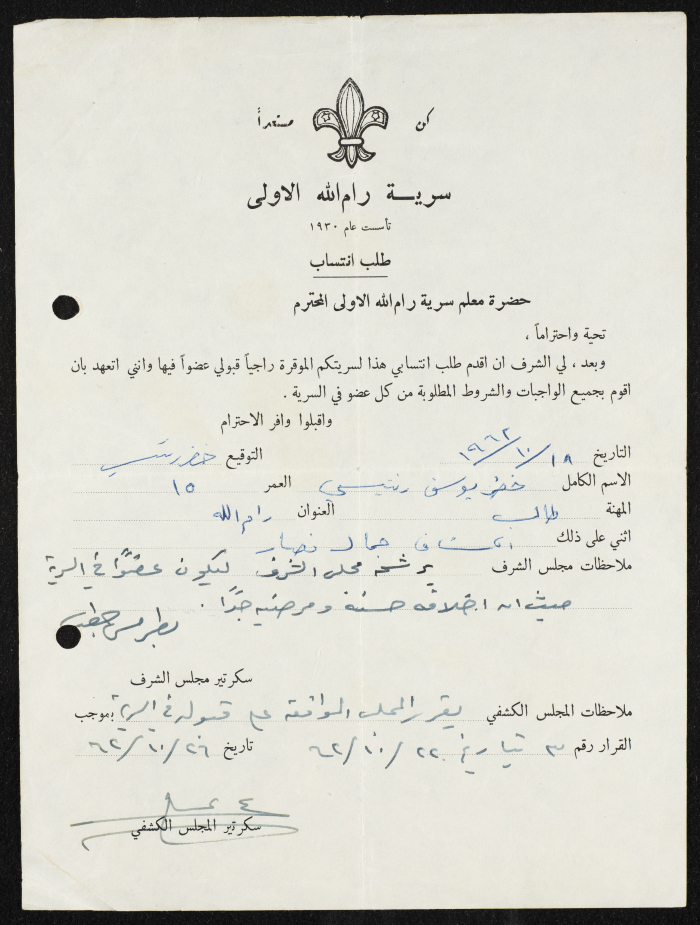 كن مستعداً
سريـة رام الله الاولى
تأسست عام ١٩٣٠
طلب انتساب
حضرة معلم سرية رام الله الاولى المحترم
تحية واحتراماً ،
وبعد ، لي الشرف ان اقدم طلب انتسابي هذا لسريتكم الموقرة راجياً قبولي عضواً فيها وانني اتعهد بان
اقوم بجميع الواجبات والشروط المطلوبة من كل عضو في السرية .
واقبلوا وافر الاحترام
التاريخ ١٩٦٢/١٠/١٨ التوقيع خضر
الاسم الكامل خضر يوسف رنتيسي العمر ١٥
المهنة طالب العنوان رام الله
اثني على ذلك الكشاف جمال نصار
ملاحظات مجلس الشرف يرشحه مجلس الشرف ليكون عضوًا في السرية
حيث ان اخلاقه حسنة ومرضيه جدًا .
سكرتير مجلس الشرف
ملاحظات المجلس الكشفي يقرر المجلس الموافقة على قبوله في السرية بموجب
القرار رقم ٣ تاريخ ٦٢/١٠/٢٢ تاريخ ٦٢/١٠/٢٦
سكرتير المجلس الكشفي